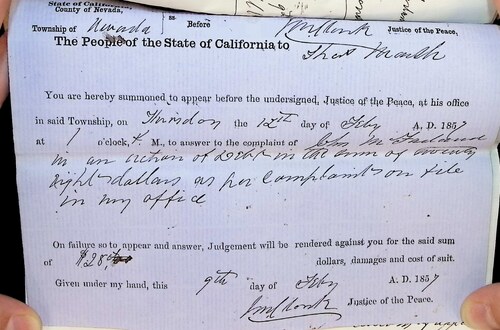 State of California,
County of Nevada, ss.
Township of Nevada Before Justice of the Peace,
The People of the State of California to
Thos Marsh
You are hereby summoned to appear before the undersigned, Justice of the Peace, at his office
in said Township, on Thursday the 12th day of Feby A. D. 1857
at 1 o'clock, P. M., to answer to the complaint of
in an action of Debt in the sum of twenty
eight dollars as per complaint on file
in my office
On failure so to appear and answer, Judgement will be rendered against you for the said sum
of $28 dollars, damages and cost of suit.
Given under my hand, this 9th day of Feby A. D. 1857
Justice of the Peace.